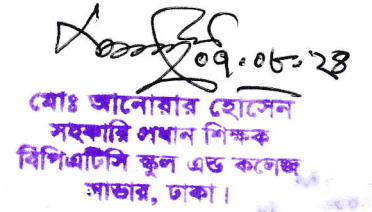 ০৭.০৮.২৪
মোঃ আনোয়ার হোসেন
সহকারি প্রধান শিক্ষক
বিপিএটিসি স্কুল এন্ড কলেজ
সাভার, ঢাকা।